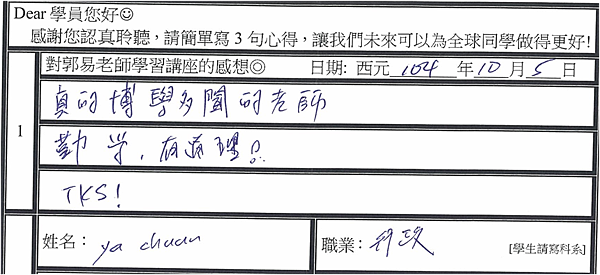 Dear 學員您好☺
感謝您認真聆聽，請簡單寫 3 句心得，讓我們未來可以為全球同學做得更好!
對郭易老師學習講座的感想◎ 日期: 西元 104 年 10 月 5 日
1
真的博學多聞的老師
勤学，有道理!
TKS!
姓名： ya chuan 職業： [學生請寫科系]